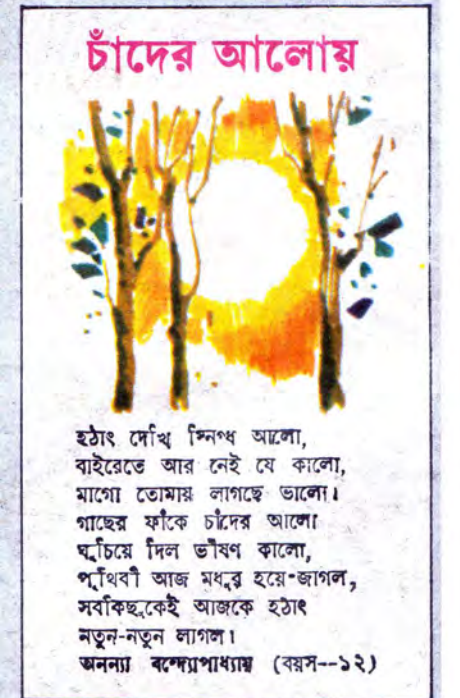 চাঁদের আলোয়
হঠাৎ দেখি স্নিগ্ধ আলো,
বাইরেতে আর নেই যে কালো,
মাগো তোমায় লাগছে ভালো।
গাছের ফাঁকে চাঁদের আলো
ঘুচিয়ে দিল ভীষণ কালো,
পৃথিবী আজ মধুর হয়ে-জাগল,
সবকিছুকেই আজকে হঠাৎ
নতুন-নতুন লাগল।
অনন্যা বন্দ্যোপাধ্যায় (বয়স--১২)